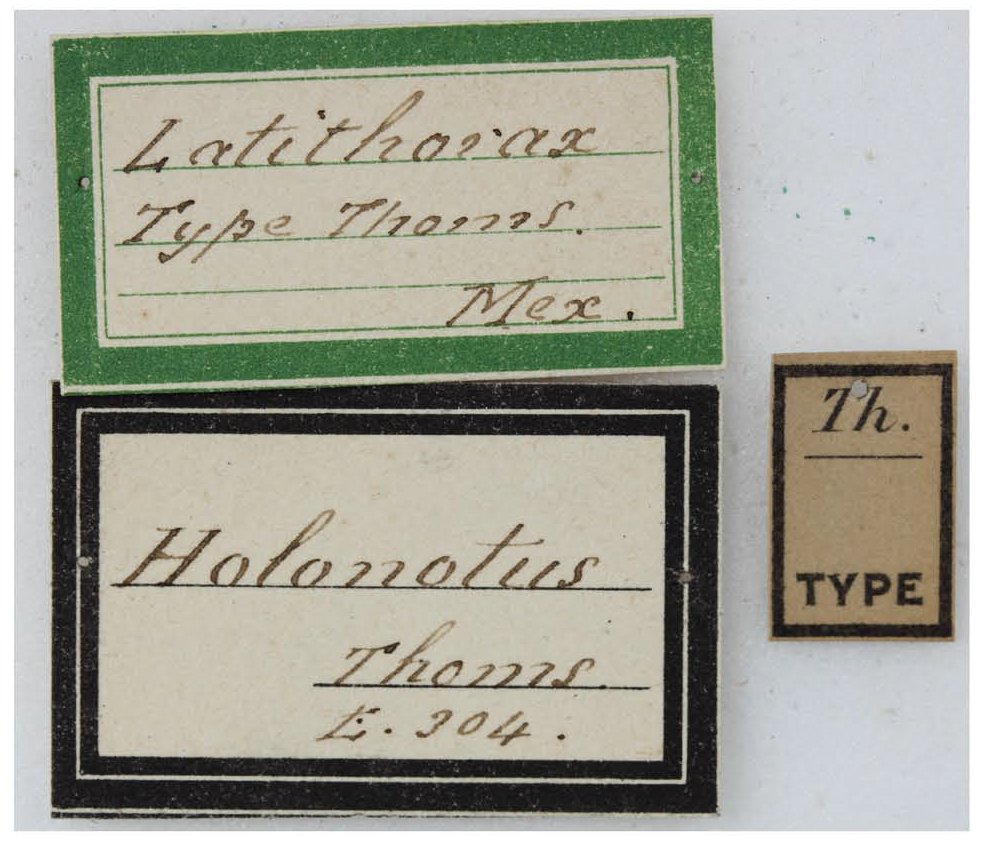 Latithorax
Type Thoms.
Mex.
Holonotus
Thoms.
E. 304.
Th.
TYPE